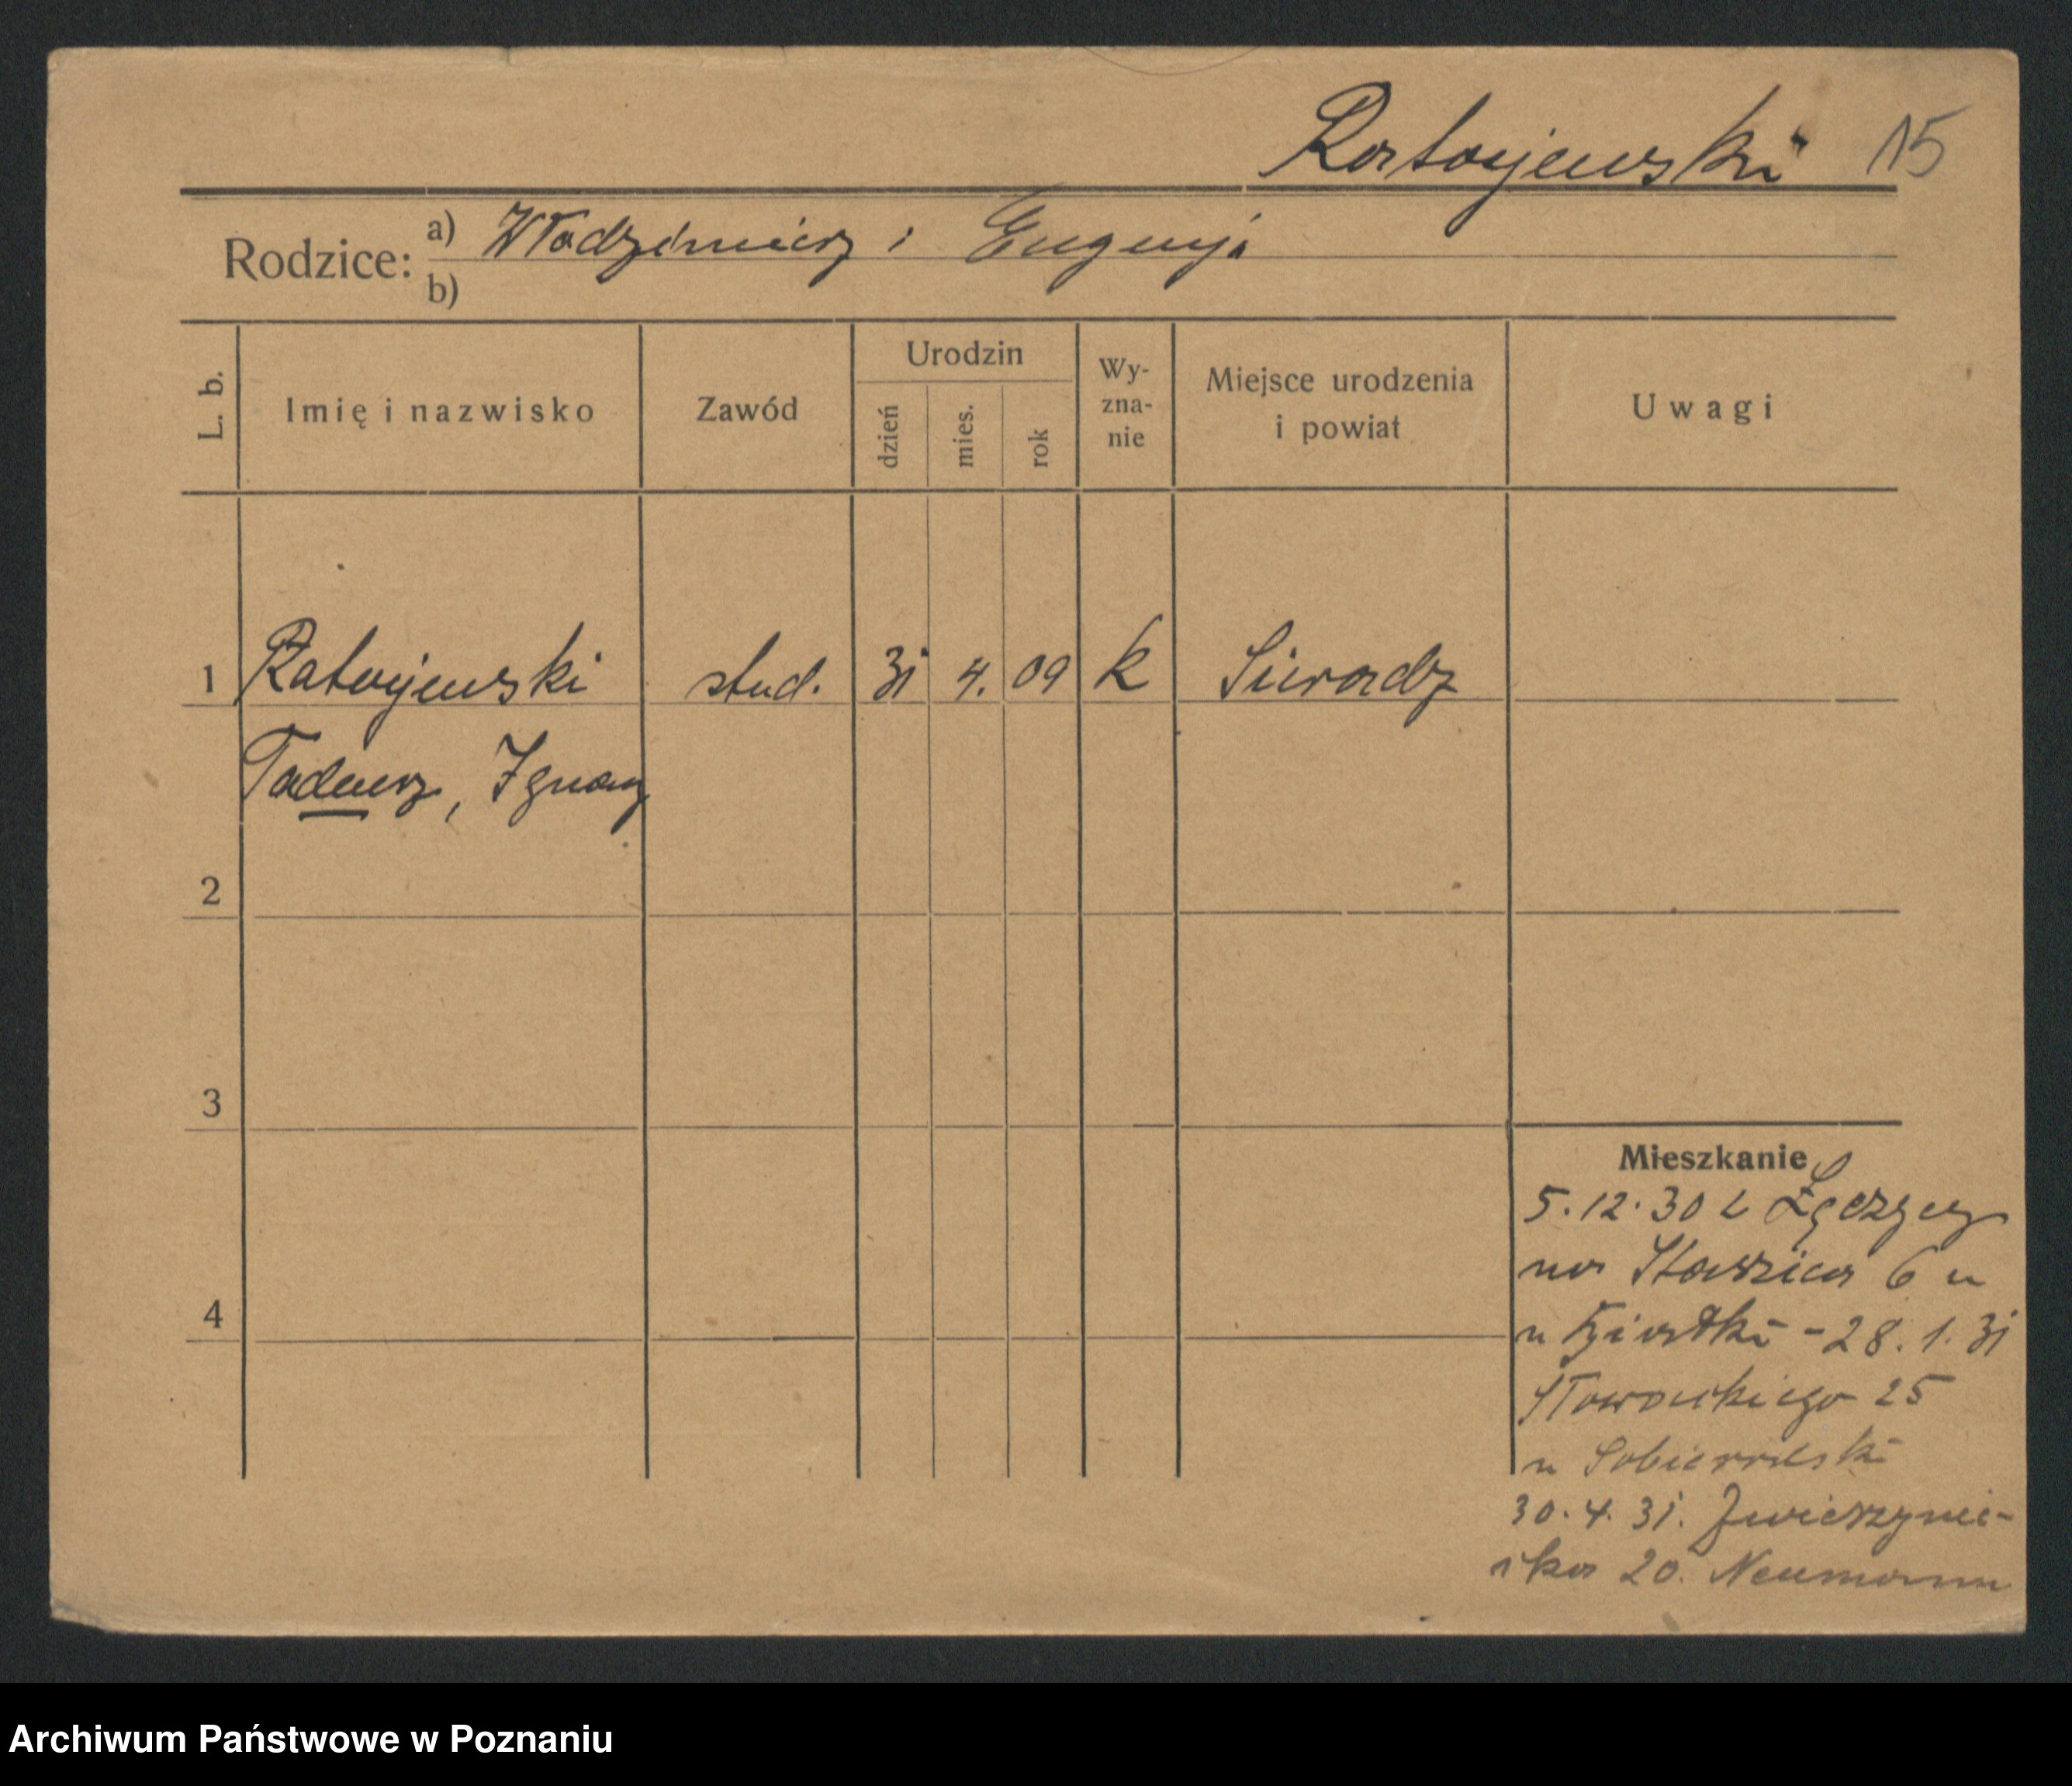 Ratajewski 15
Rodzice: a) Włodzimierz i Eugenja
b)
L. b. Imię i nazwisko Zawód Urodzin dzień mies. rok Wy-zna-nie Miejsce urodzenia i powiat Uwagi
1 Ratajewski stud. 31 4. 09 k Sieradz
Tadeusz, Ignacy
2
3
4
Mieszkanie
5.12.30 z Łęczycy
na Staszica 6 u
u - 28.1.31
Słowackiego 25
u
30.4.31. Zwierzynie-
cka 20. Neumann
Archiwum Państwowe w Poznaniu